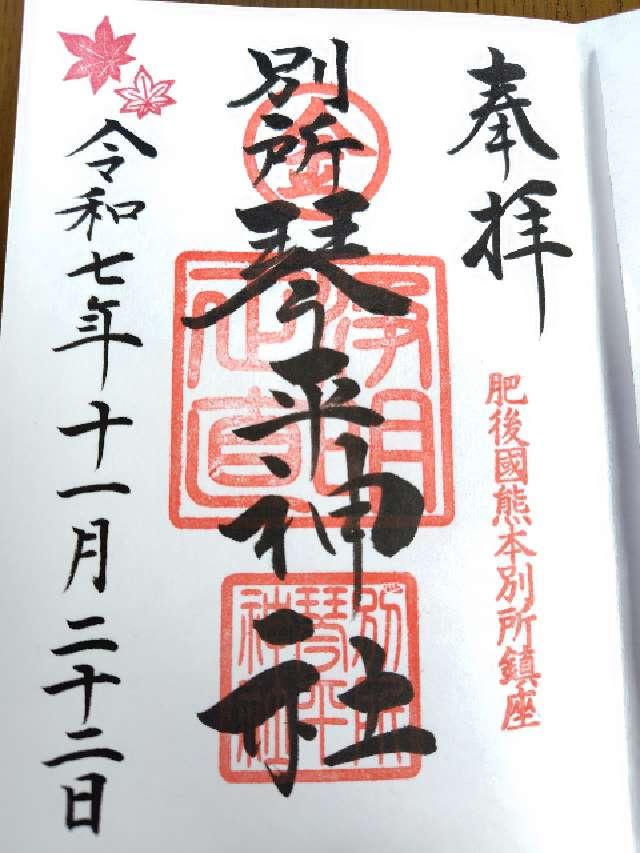 奉拝
肥後國熊本別所鎮座
別所琴平神社
金
浄明正直
別所琴平神社
令和七年十一月二十二日